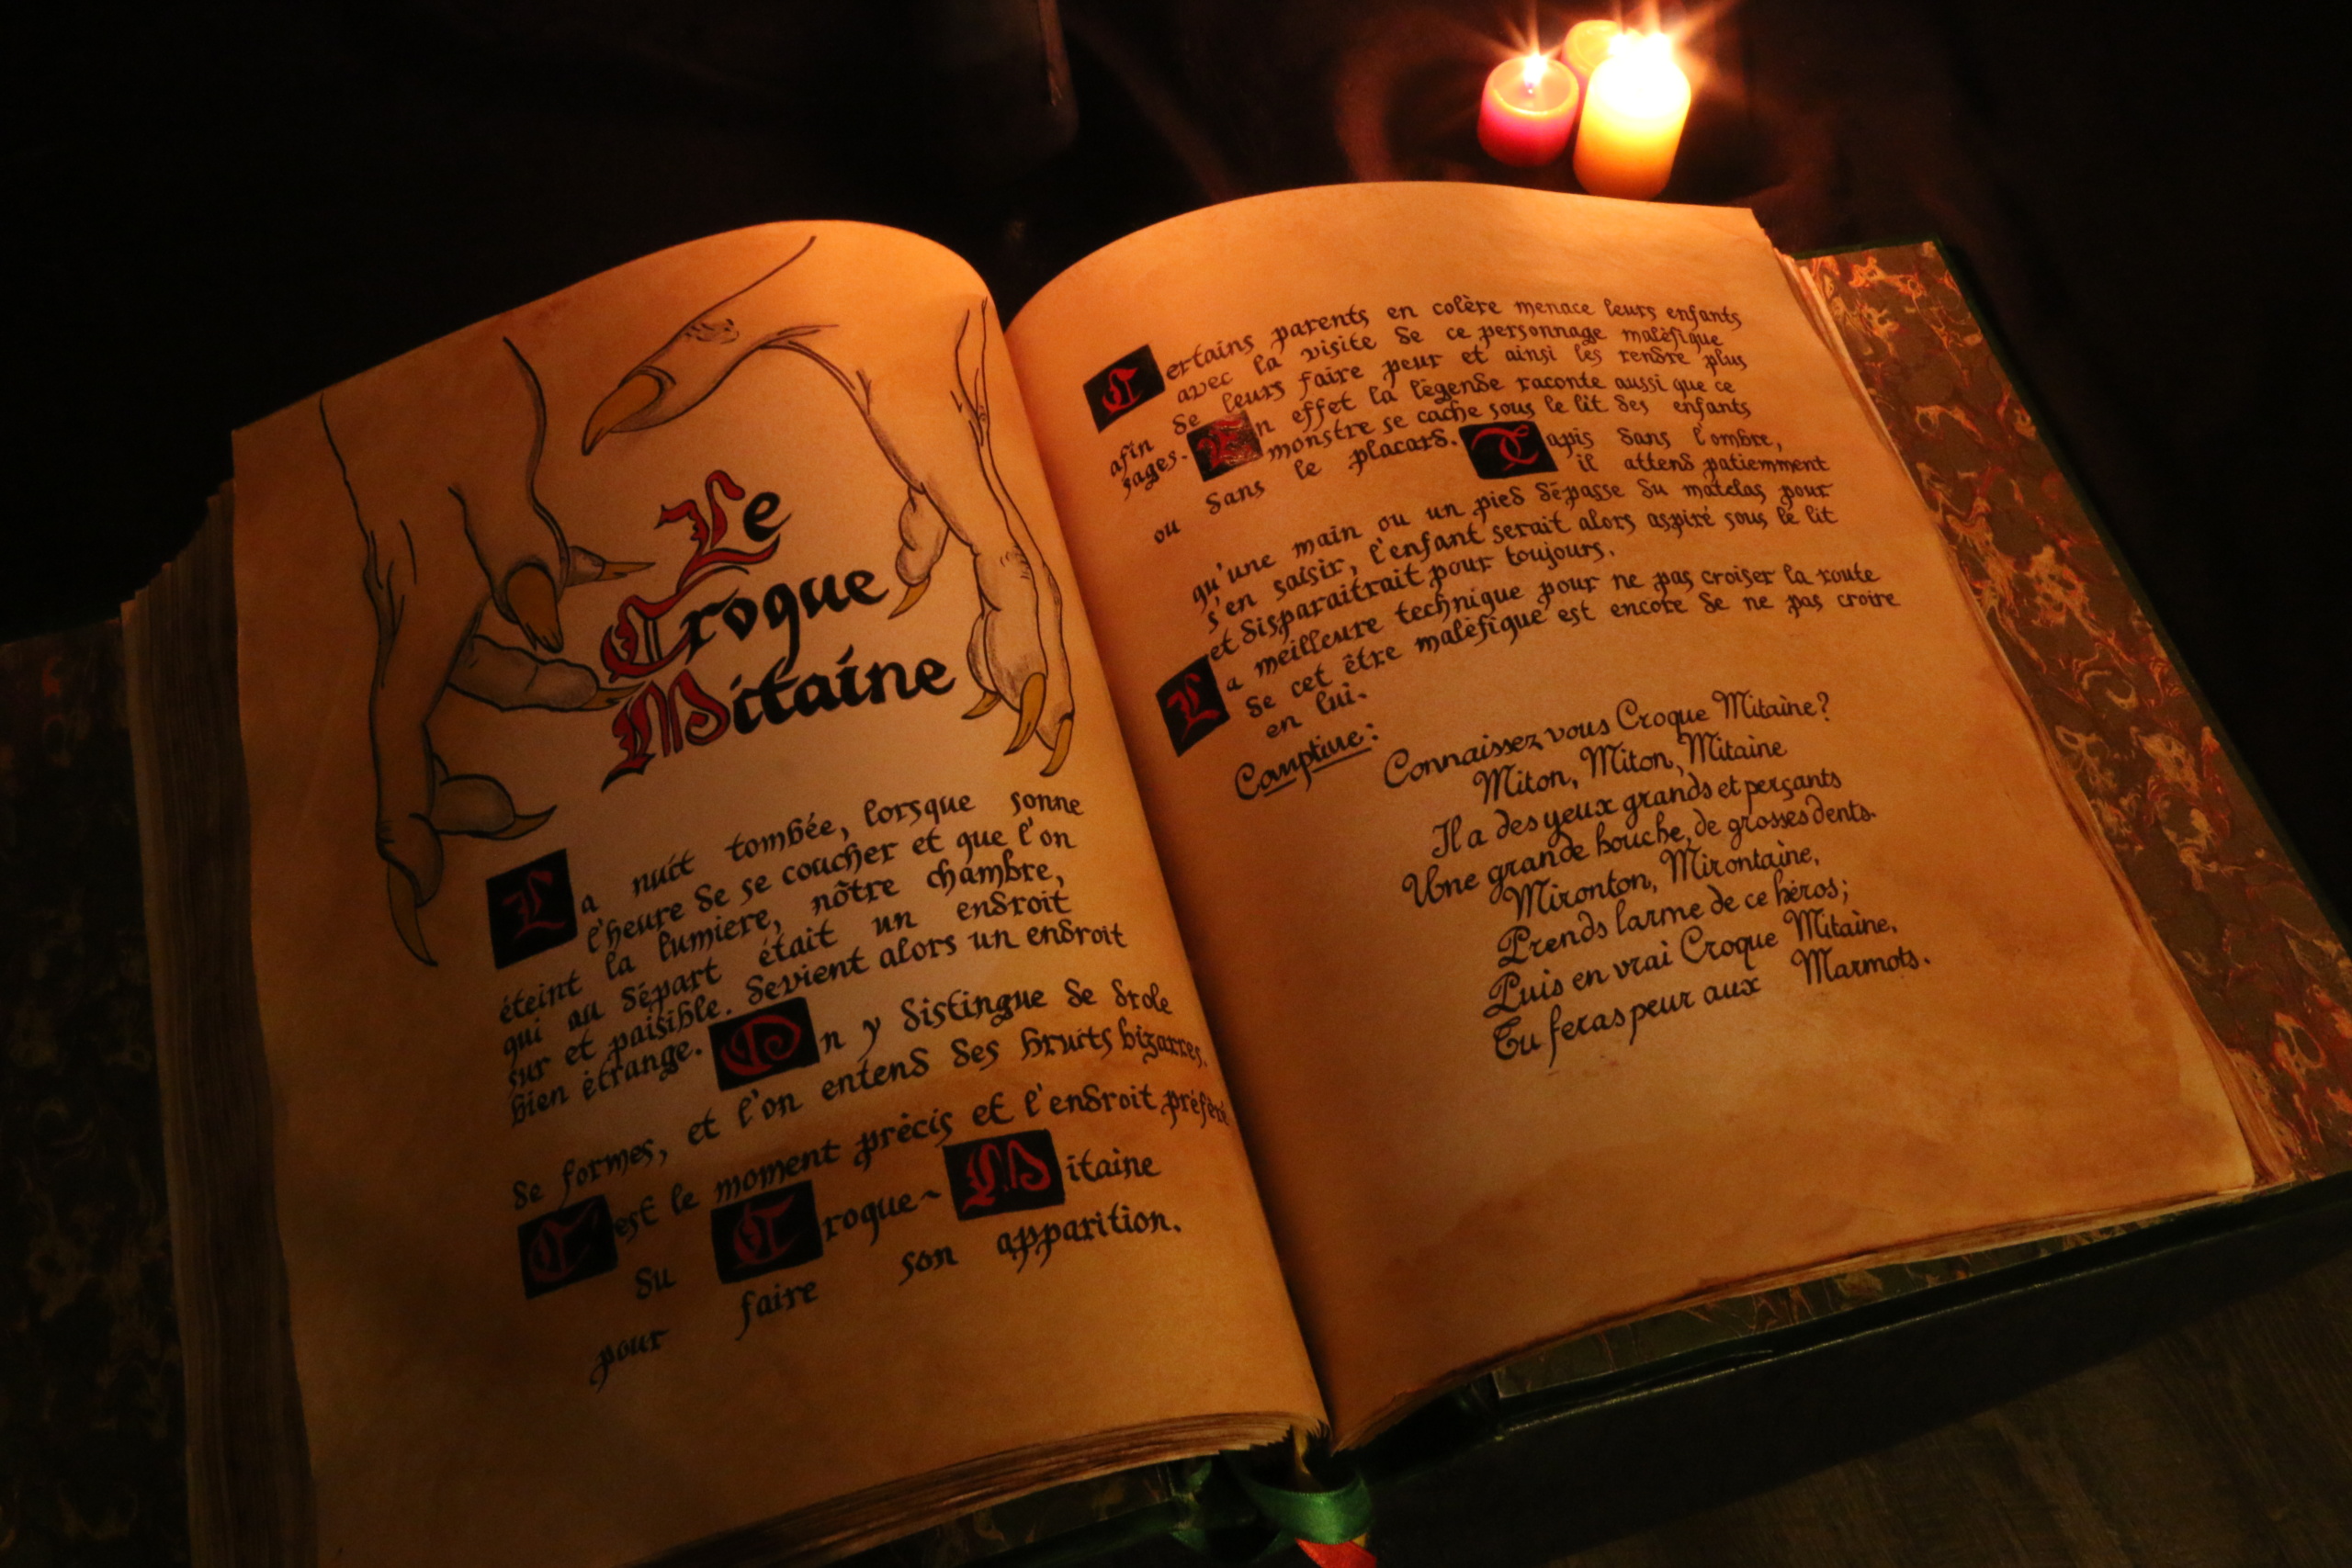 Le
Croque
Mitaine
La nuit tombée, lorsque sonne
l'heure de se coucher et que l'on
éteint la lumiere, nôtre chambre,
qui au départ était un endroit
sur et paisible. devient alors un endroit
bien étrange. On y distingue de drole
de formes, et l'on entend des bruits bizarres.
C'est le moment précis et l'endroit préféré
du Croque-Mitaine
pour faire son apparition.
Certains parents en colère menace leurs enfants
avec la visite de ce personnage maléfique
afin de leurs faire peur et ainsi les rendre plus
sages. En effet la légende raconte aussi que ce
monstre se cache sous le lit des enfants
ou dans le placard. Tapis dans l'ombre,
il attend patiemment
qu'une main ou un pied dépasse du matelas pour
s'en saisir, l'enfant serait alors aspiré sous le lit
et disparaitrait pour toujours.
La meilleure technique pour ne pas croiser la route
de cet être maléfique est encore de ne pas croire
en lui.
Comptine:
Connaissez vous Croque Mitaine?
Miton, Miton, Mitaine
Il a des yeux grands et perçants
Une grande bouche, de grosses dents.
Mironton, Mirontaine,
Prends larme de ce héros;
Puis en vrai Croque Mitaine,
Tu feras peur aux Marmots.